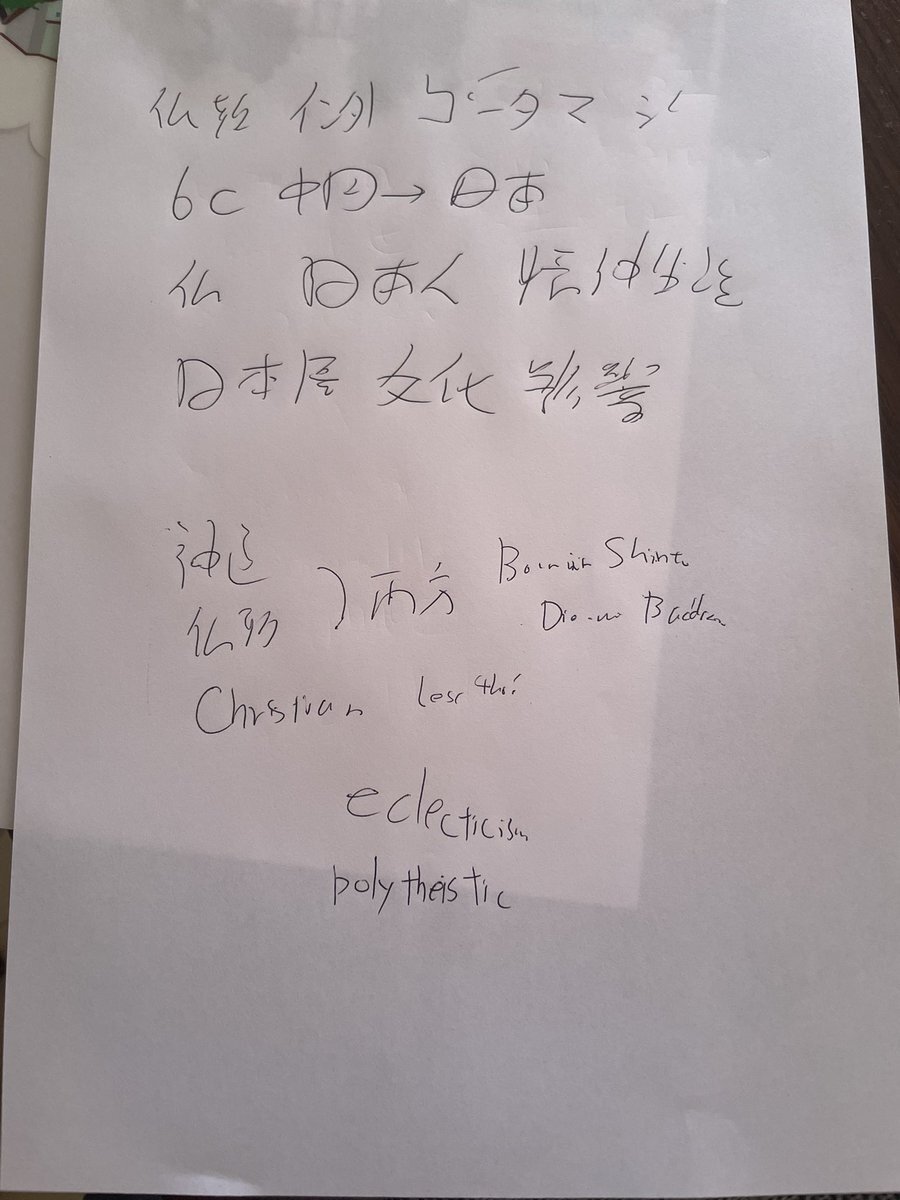 仏教 インド ゴータマ シ
6c 中国→日本
仏 日本人 精神
日本 文化 影響
神道
仏教 ) 両方 Born in Shinto
Die Buddhism
Christian less
eclecticism
polytheistic